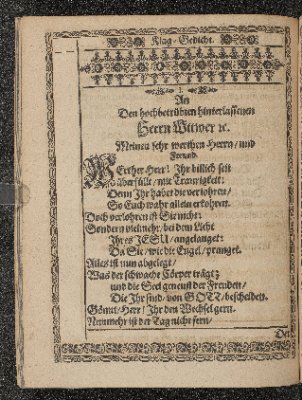 Klag-Gedicht.
I.
An
Den hochbetrübten hinterlassenen
Herrn Witwer ꝛc.
Meinen sehr werthen Herrn / und
Freund.
WErther Herr! Ihr billich seit
überfüllt / mit Traurigkeit:
Denn Ihr habet die verlohren /
So Euch wahr allein erkohren.
Doch verlohren ist Sie nicht:
Sondern vielmehr / bei dem Licht
Ihres JESU / angelanget:
Da Sie / wie die Engel / pranget.
Alles ist nun abgelegt /
Was der schwache Cörper trägt;
und die Seel geneust der Freuden /
Die Ihr sind / von GOTT / bescheiden.
Gönnt / Herr! Ihr den Wechsel gern.
Nunmehr ist der Tag nicht fern /